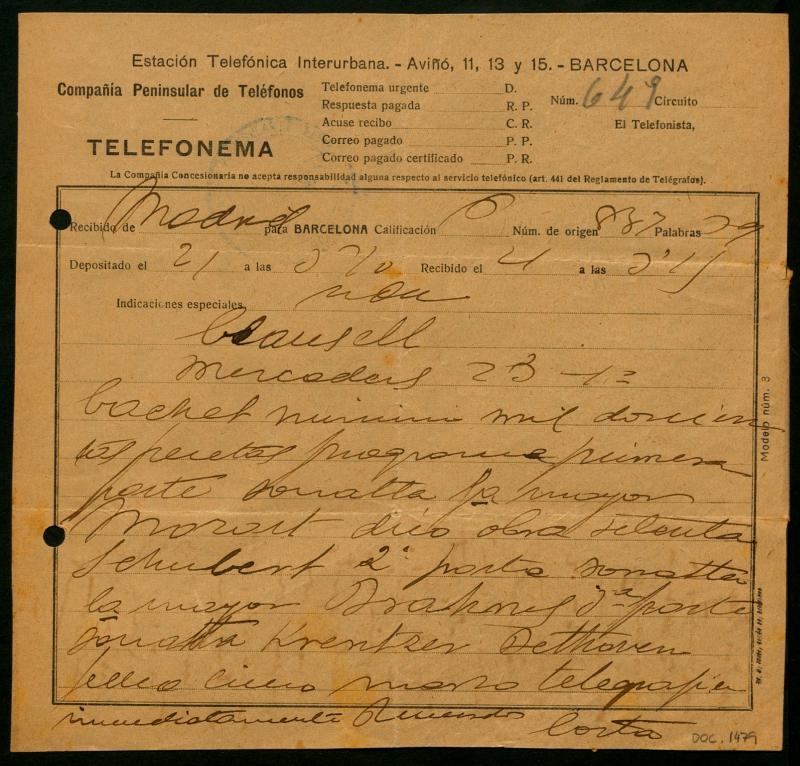 Estación Telefónica Interurbana. - Aviñó, 11, 13 y 15. - BARCELONA
Compañía Peninsular de Teléfonos
TELEFONEMA
Telefonema urgente D.
Respuesta pagada R. P.
Acuse recibo C. R.
Correo pagado P. P.
Correo pagado certificado P. R.
Núm. 649 Circuito
El Telefonista,
La Compañía Concesionaria no acepta responsabilidad alguna respecto al servicio telefónico (art. 441 del Reglamento de Telégrafos).
Recibido de Madrid para BARCELONA Calificación Núm. de origen 837 Palabras 39
Depositado el 21 a las Recibido el 21 a las 3'15
Indicaciones especiales
Clausell
Mercaders 23 1º
cachet minimo mil docien
tas pesetas programa primera
parte sonatta fa mayor
Mozart duo obra
Schubert 2ª parte sonatta
la mayor Brahms 3ª parte
sonatta Krentzer Bethoven
fecha cinco marzo telegrafien
inmediatamente
Costa
Modelo núm. 3
DOC. 1479